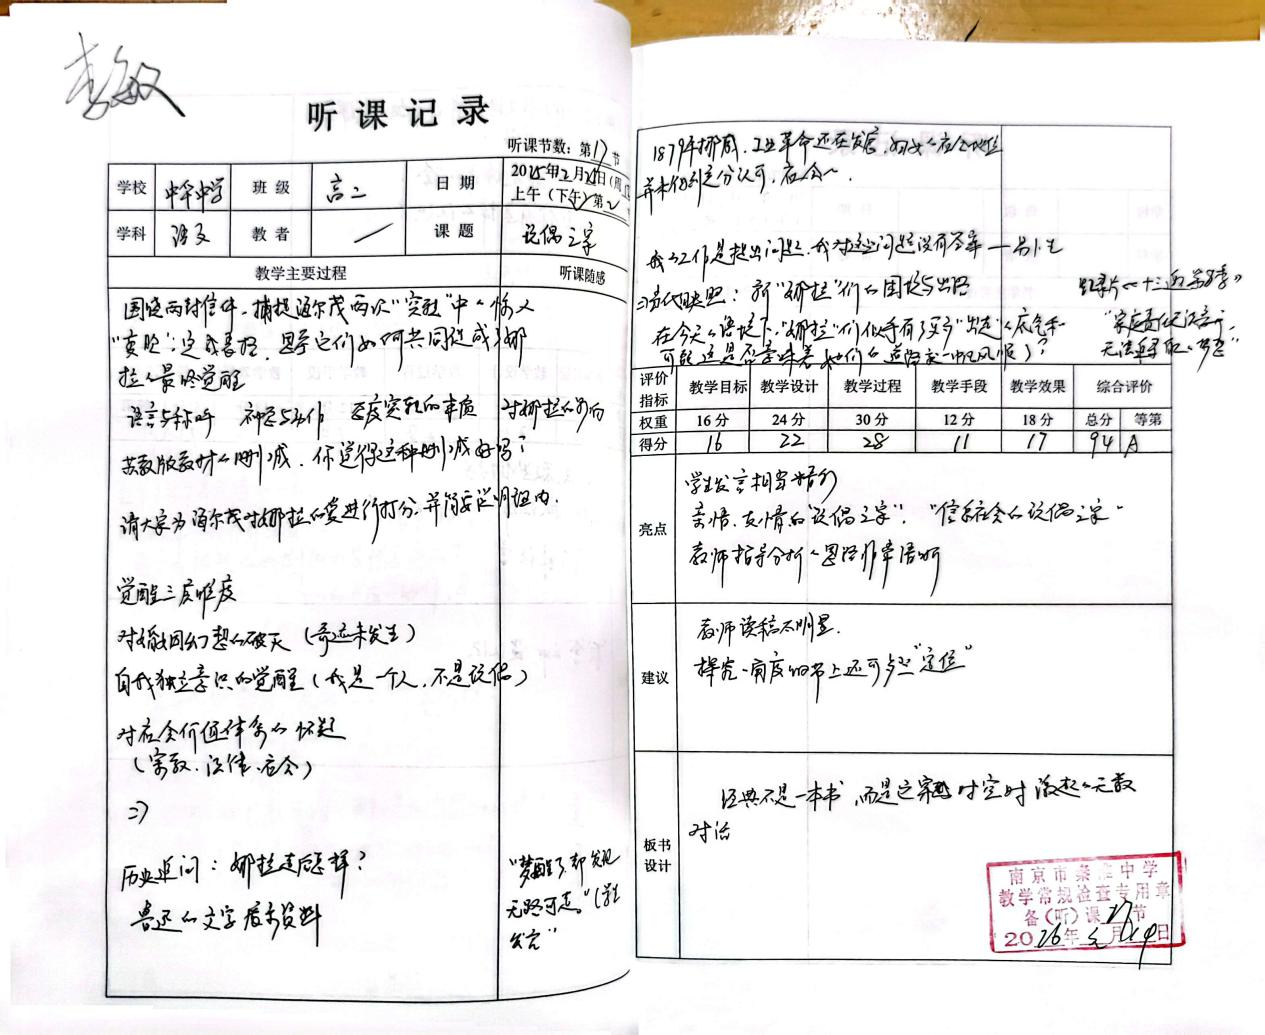 李敏
听课记录
听课节数：第17节
学校 中华中学 班级 高二 日期 2025年2月 日(周
上午(下午)第2
学科 语文 教者 / 课题 玩偶之家
教学主要过程 听课随感
围绕两封信件，捕捉海尔茂两次“变脸”中的
“真貌”；完成表格，思考它们如何共同促成了娜
拉的最终觉醒
语言与称呼 神态与动作 态度突转的本质 对娜拉的影响
苏教版教材的删减，你觉得这种删减好吗？
请大家为海尔茂对娜拉的爱进行打分，并简要说明理由.
觉醒三层维度
对婚姻幻想的破灭（奇迹未发生）
自我独立意识的觉醒（我是一个人，不是玩偶）
对社会价值体系的怀疑
（宗教、法律、社会）
⇒
历史追问：娜拉走后怎样？
鲁迅的文字 资料
“梦醒了却发现
无路可走。”（学生
发言”
1879年挪威，工业革命还在发展，妇女的社会地位
并未得到充分认可，社会
我的工作是提出问题，我对这些问题没有答案——易卜生
⇒当代映照：新“娜拉”们的困境与出路
纪录片《
在今天的语境下，“娜拉”们似乎有了更多“出走”的底气和
可能，这是否意味着她们的 一帆风顺）？
“家庭责任
无法 梦”
评价指标 教学目标 教学设计 教学过程 教学手段 教学效果 综合评价
权重 16分 24分 30分 12分 18分 总分 等第
得分 16 22 28 11 17 94 A
亮点
学生发言相当精彩
亲情、友情的“玩偶之家”，“ 社会的玩偶之家”
教师指导分析的思路非常清晰
建议
教师读稿不明显.
探究一角度细节上还可多些“定位”
板书设计
经典不是一本书，而是这穿越时空时激起的无数
对话
南京市秦淮中学
教学常规检查专用章
备(听)课17节
2026年 月 日